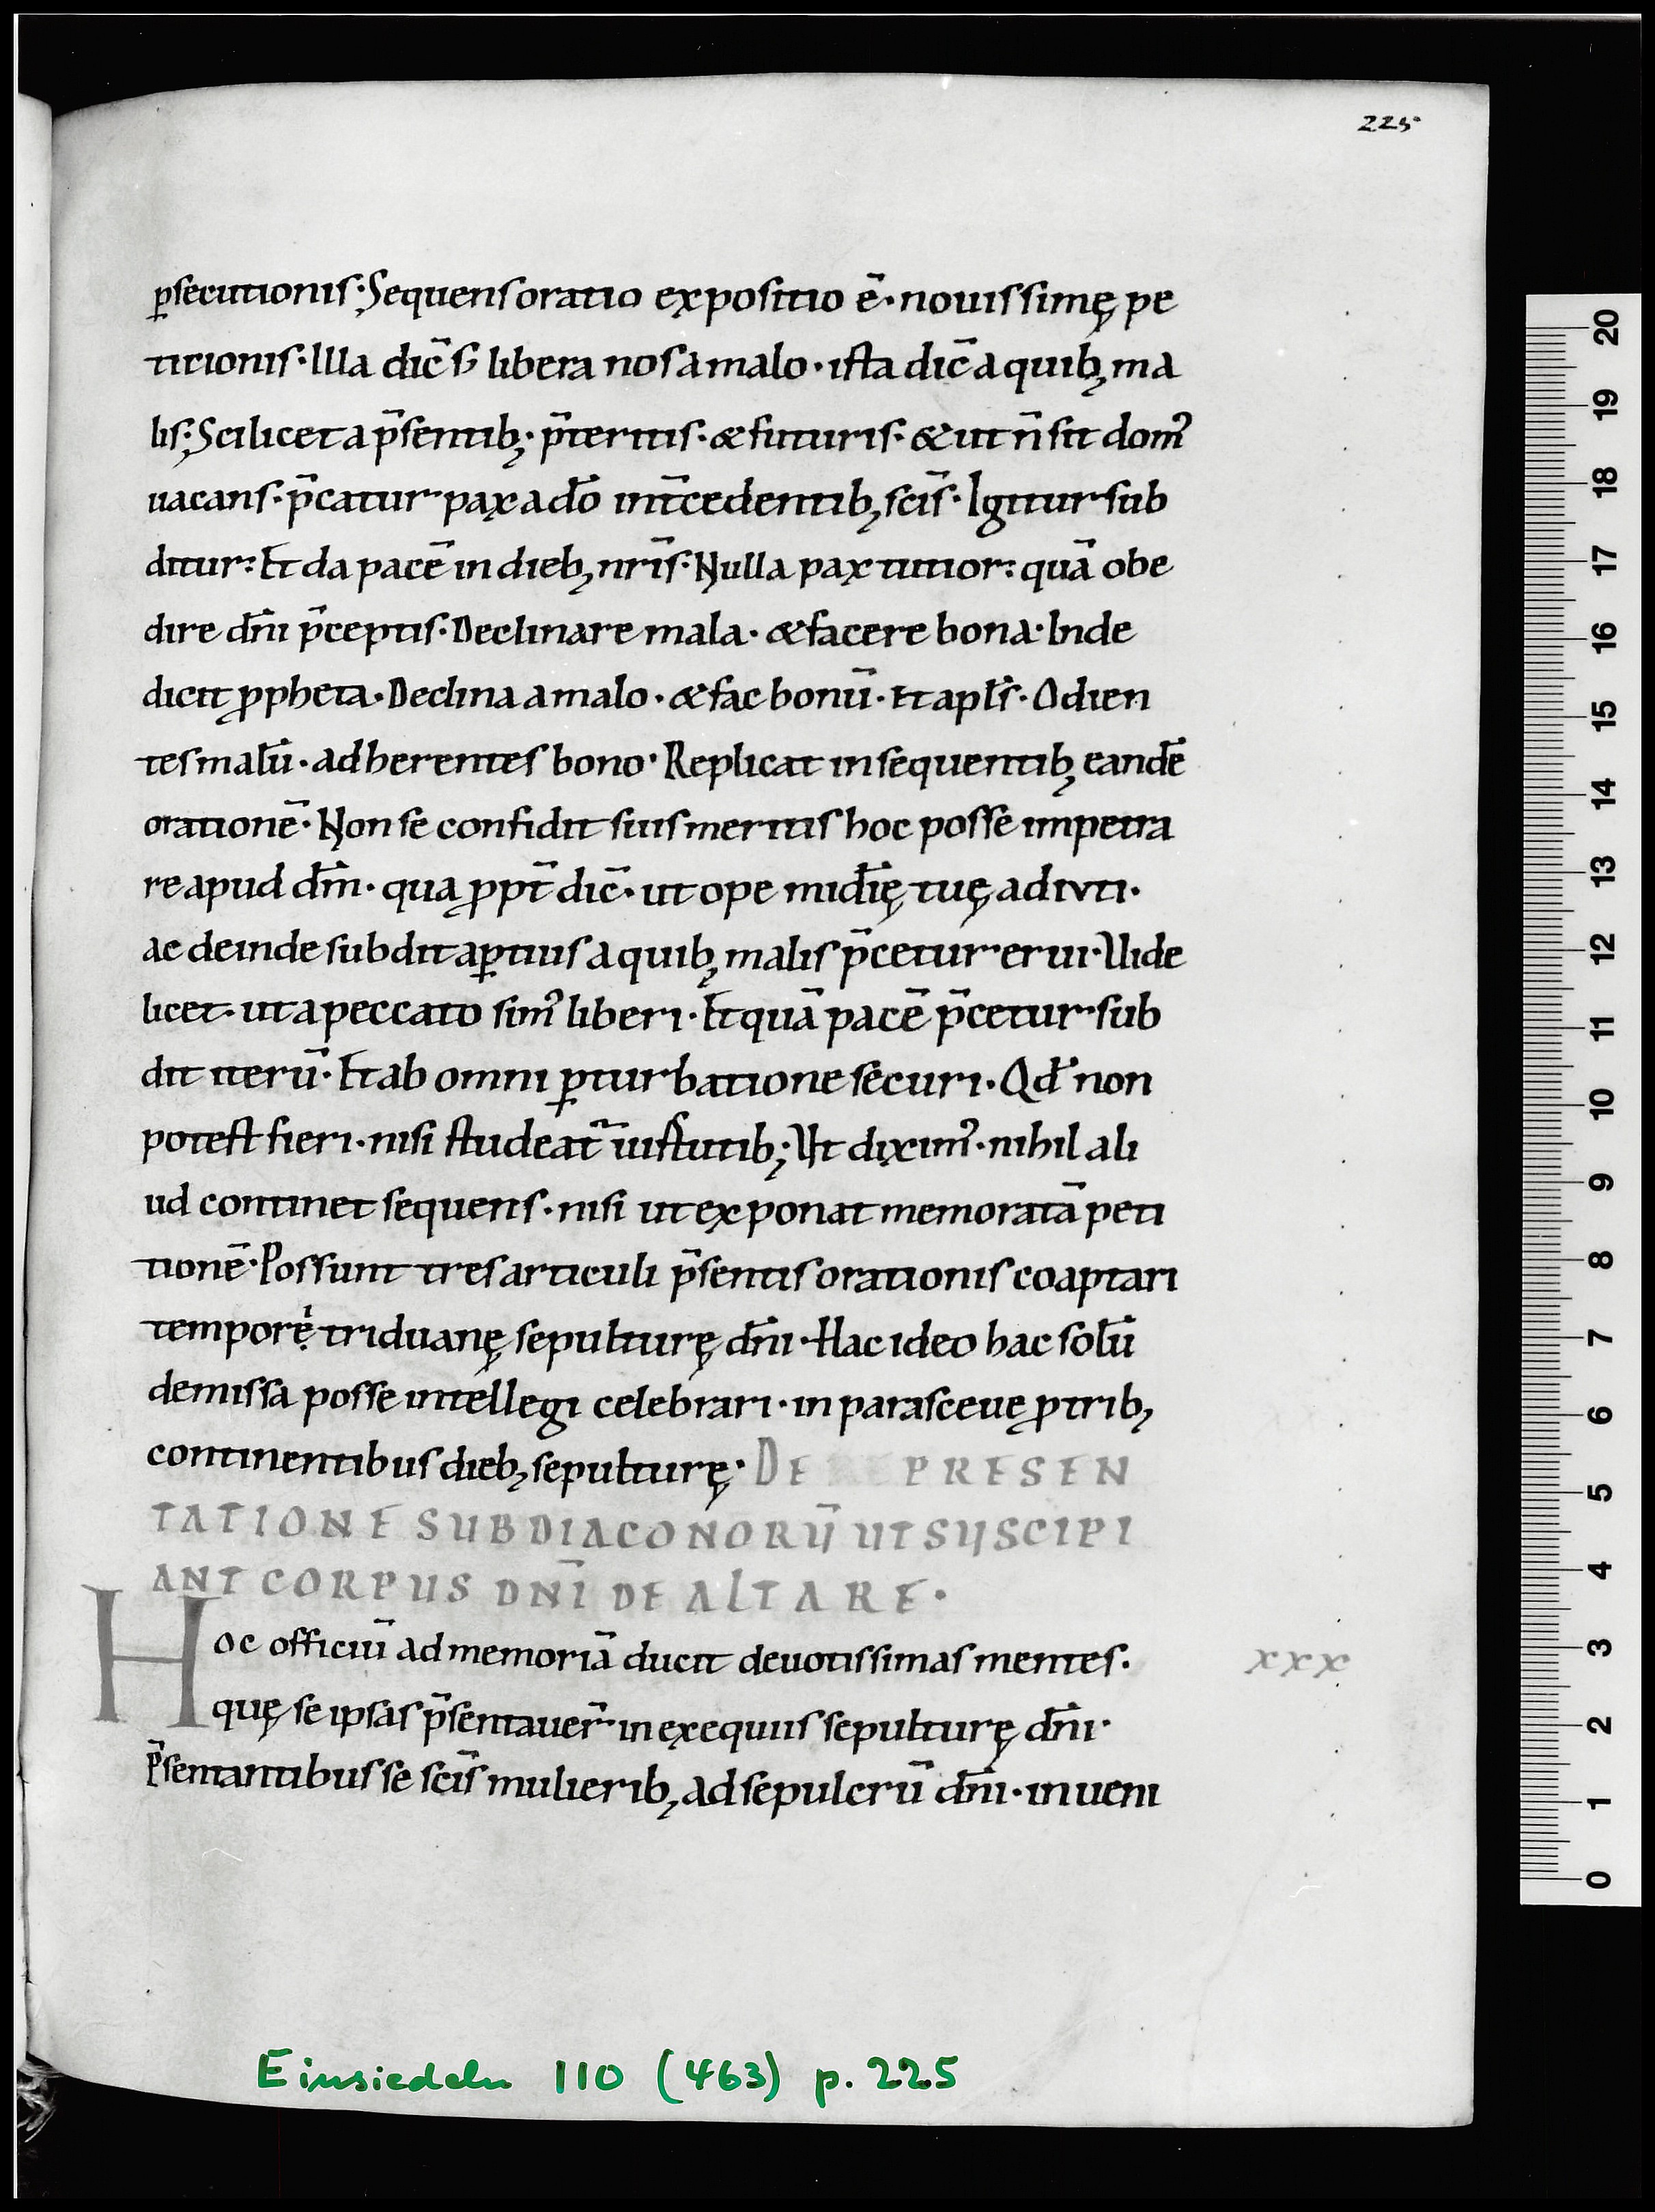 225
p̱secutionis· Sequens oratio expositio ē· nouissimę pe
titionis· Illa dic̄ s; libera nos a malo· ista dic̄ a quib; ma
lis· Scilicet a p̄sentib;· p̄teritis· & futuris· & ut n̄ sit dom᾽
uacans· p̄catur pax a dō int̄cedentib; sc̄is· Igitur sub
ditur· Et da pacē in dieb; nr̄is· Nulla pax tutior· quā obe
dire dn̄i p̄ceptis· Declinare mala· & facere bona· Inde
dicit ꝓpheta· Declina a malo· & fac bonū· Et apl̄s· Odien
tes malū· adherentes bono· Replicat in sequentib; eandē
orationē· Non se confidit suis meritis hoc posse impetra
re apud dn̄m· qua ꝓpt̄ dic̄· ut ope mīdię tuę adiuti·
ac deinde subdit ap̱tius a quib; malis p̄cetur erui· Uide
licet· ut a peccato sim᾽ liberi· Et quā pacē p̄cetur sub
dit iterū· Et ab omni p̱turbatione securi· Qd̄ non
potest fieri· nisi studeat̄ uirtutib;· Ut dixim᾽· nihil ali
ud continet sequens· nisi ut exponat memoratā peti
tionē· Possunt tres articuli p̄sentis orationis coaptari
temporę triduanę sepulturę dn̄i· Hac ideo hac solū
demissa posse intellegi celebrari· in parasceue ꝓ trib;
continentibus dieb; sepulturę· DE PRESEN
TATIONE SUBDIACONORŪ UT SUSCIPI
ANT CORPUS DN̄I DE ALTARE·
Hoc officiū ad memoriā ducit deuotissimas mentes· xxx
quę se ipsas p̄sentauer̄· in exequiis sepulturę dn̄i·
P̄sentantibus se sc̄is mulierib; ad sepulcrū dn̄i· inueni
Einsiedeln 110 (463) p. 225
20
19
18
17
16
15
14
13
12
11
10
9
8
7
6
5
4
3
2
1
0